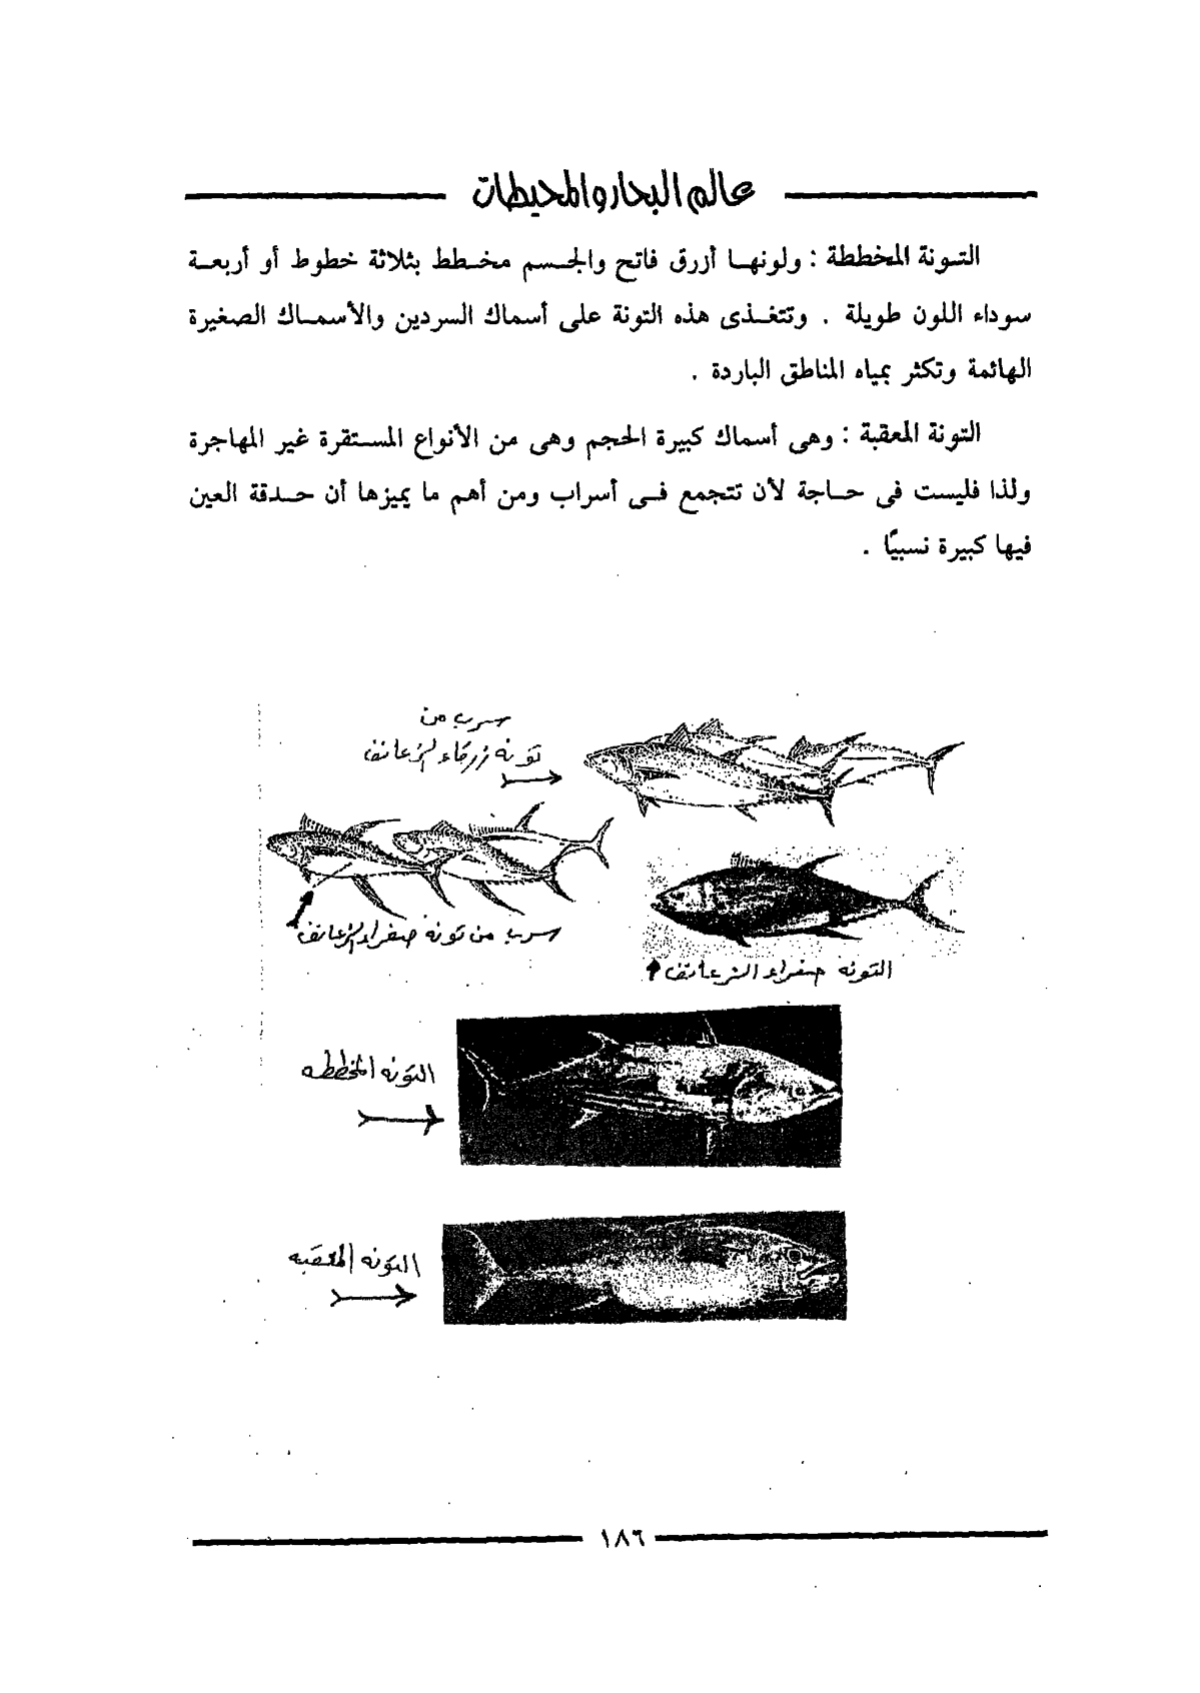 عالم البحار والمحيطات
التونة المخططة : ولونها أزرق فاتح والجسم مخطط بثلاثة خطوط أو أربعة
سوداء اللون طويلة . وتتغذى هذه التونة على أسماك السردين والأسماك الصغيرة
الهائمة وتكثر بمياه المناطق الباردة .
التونة المعقبة : وهى أسماك كبيرة الحجم وهى من الأنواع المستقرة غير المهاجرة
ولذا فليست فى حاجة لأن تتجمع فى أسراب ومن أهم ما يميزها أن حدقة العين
فيها كبيرة نسبيًا .
سرب من
تونه زرقاء الزعانف
سرب من تونه صفراء الزعانف
التونه صفراء الزعانف
التونه المخططه
التونه المعقبه
١٨٦